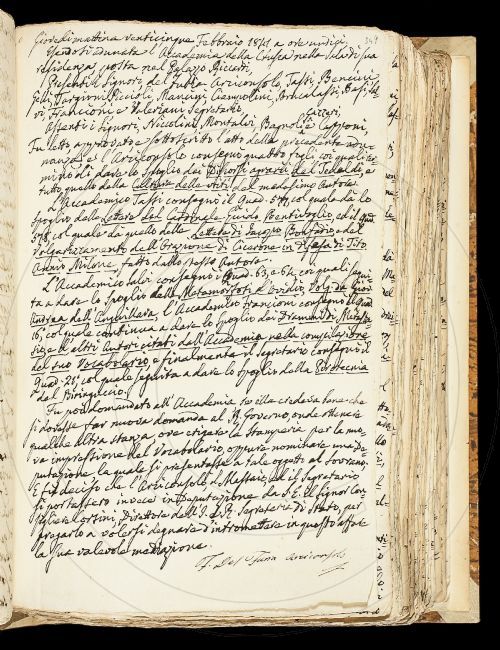 341
Giovedì mattina venticinque Febbraio 1841 a ore undici.
Essendosi adunata l'Accademia della Crusca nella sala di sua
residenza, posta nel Palazzo Riccardi,
Presenti i Signori del Furia Arciconsolo, Tassi, Bencini,
Gelli, Targioni, Piccioli, Mancini, Ciampolini, Salvi,
ri, Francioni, e Valeriani Segretario,
Assenti i Signori, Niccolini, Montalvi, Bagnoli e Capponi,
Fu letto approvato e sottoscritto l'atto della precedente adu-
nanza; e l'Arciconsolo consegnò quattro fogli coi quali ter-
minò di dare lo spoglio dei Discorsi agrarj del Tedaldi, e
tutto quello della Coltura delle viti del medesimo Autore.
L'Accademico Tassi consegnò il Quad. 577, col quale dà lo
spoglio delle Lettere del Cardinale Guido Bentivoglio, ed il Quad.
578, col quale dà quello delle Lettere di Jacopo Bonfadio e del
Volgarizzamento dell'Orazione di Cicerone in difesa di Tito
Annio Milone, fatto dallo stesso Autore.
L'Accademico Salvi consegnò i Quad. 63, e 64, coi quali segui-
ta a dare lo spoglio delle Metamorfosi d'Ovidio, Volg. da Gio:
Andrea dell'Anguillara. L'Accademico Francioni consegnò il Quad.
16, col quale continua a dare lo spoglio dei Drammi di Metasta-
sio, e d'altri Autori citati dall'Accademia nella compilazione
del suo Vocabolario e finalmente il Segretario consegnò il
Quad. 21, col quale seguita a dare lo spoglio della Pirotecnia
del Biringuccio.
Fu poi domandato all'Accademia se ella credeva bene che
si dovesse far nuova domanda al Governo, onde ottenere
qualche altra stanza, ove erigere la Stamperia per la nuo-
va impressione del Vocabolario, oppure nominare una De-
putazione la quale si presentasse a tale oggetto al Sovrano.
E fu deciso che l'Arciconsolo, il Massaio, ed il Segretario
si portassero invece in Deputazione da S. E. il Signor Con-
sigliere Corsini, Direttore dell'I. e R. Segreteria di Stato, per
pregarlo a volersi degnare d'intromettere in questo affare
la sua valevole mediazione.
F. Del Furia Arciconsolo